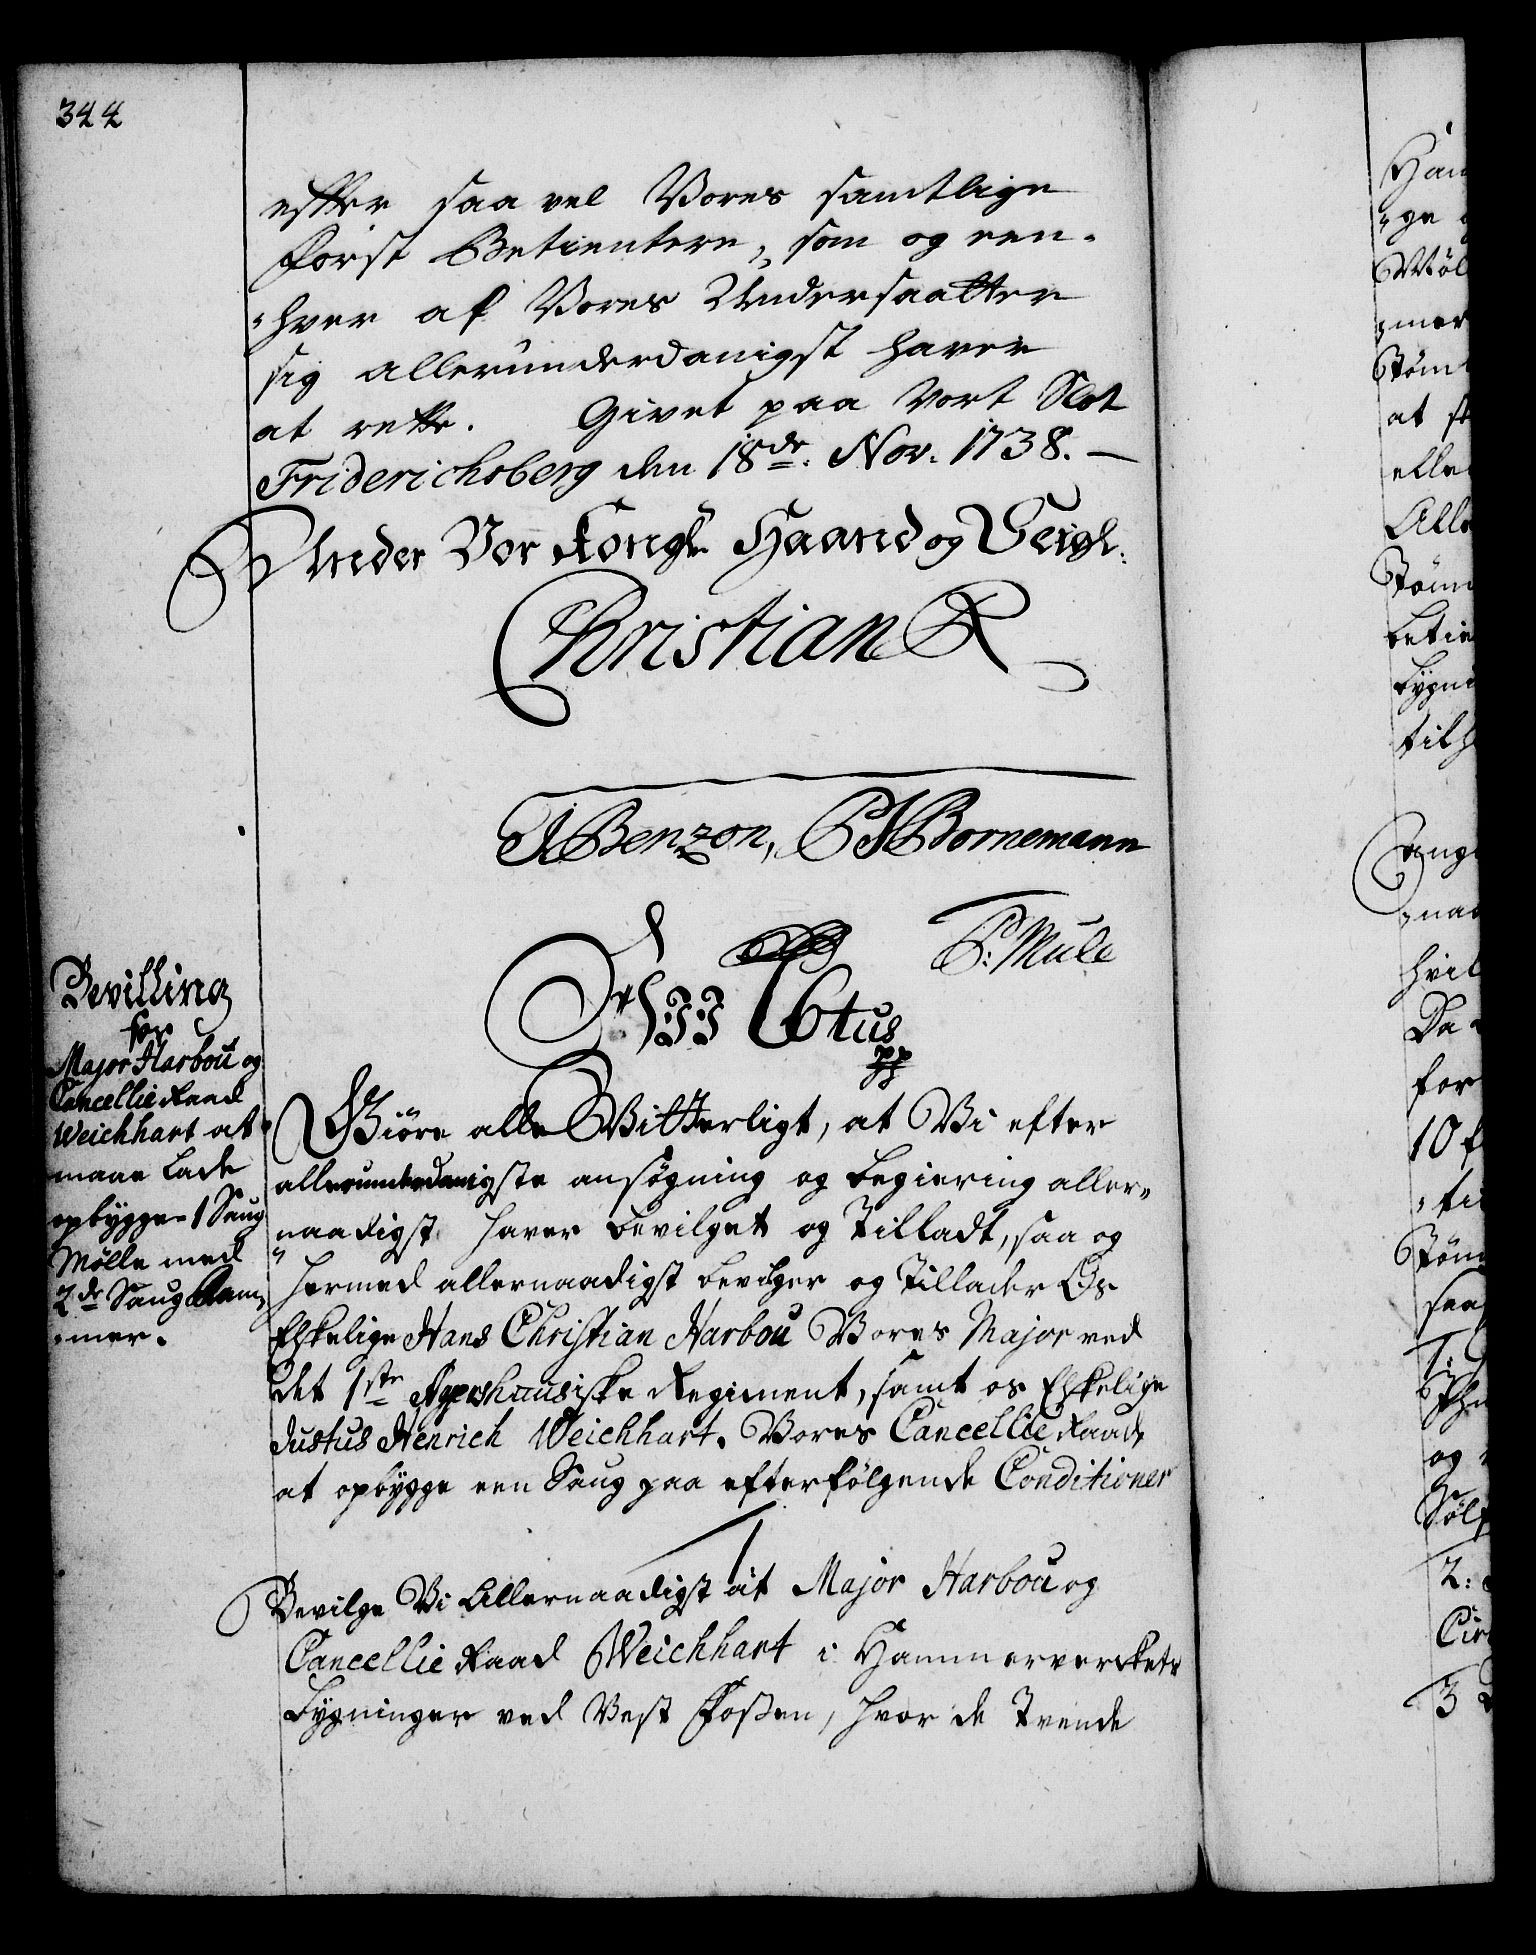 344
efter saa vel Vores samtlige
Forst Betientere, som og een-
hver af Vores Undersaatter
sig allerunderdanigst haver
at rette. Givet paa Vort Slot
Friderichsberg den 18de. Nov. 1738. —
Under Vor Kongl. Haand og Seigl.
Christian R
JBenzon, Bornemann
P: Mule
Wii C6tus
pp
Bevilling
for
Major Harbou og
Cancellie Raad
Weichhart at
maae lade
opbygge 1 Saug
Mölle med
2de Saug Ram,
mer.
Giöre alle Vitterligt, at Vi efter
allerunderdanigste ansögning og begiering aller-
naadigst haver bevilget og Tilladt, saa og
hermed allernaadigst bevilger og Tillader Os
Elskelige Hans Christian Harbou Vores Major ved
det 1ste Agershuusiske Regiment, samt os Elskelige
Justus Henrich Weichhart. Vores Cancellie Raad,
at opbygge een Saug paa efterfölgende Conditioner
1
Bevilge Vi Allernaadigst at Major Harbou og
Cancellie Raad Weichhart i Hammerverkets
Bygninger ved Vest Foßen, hvor de Trende
Ham
ge
Möl
mer
Töm
at
elle
Alle
Töm
betie
bygni
tilh
ange
naa
hvil
Da
for
10
ti
Töm
saa
1:
og
Söl
2:
Cir
3